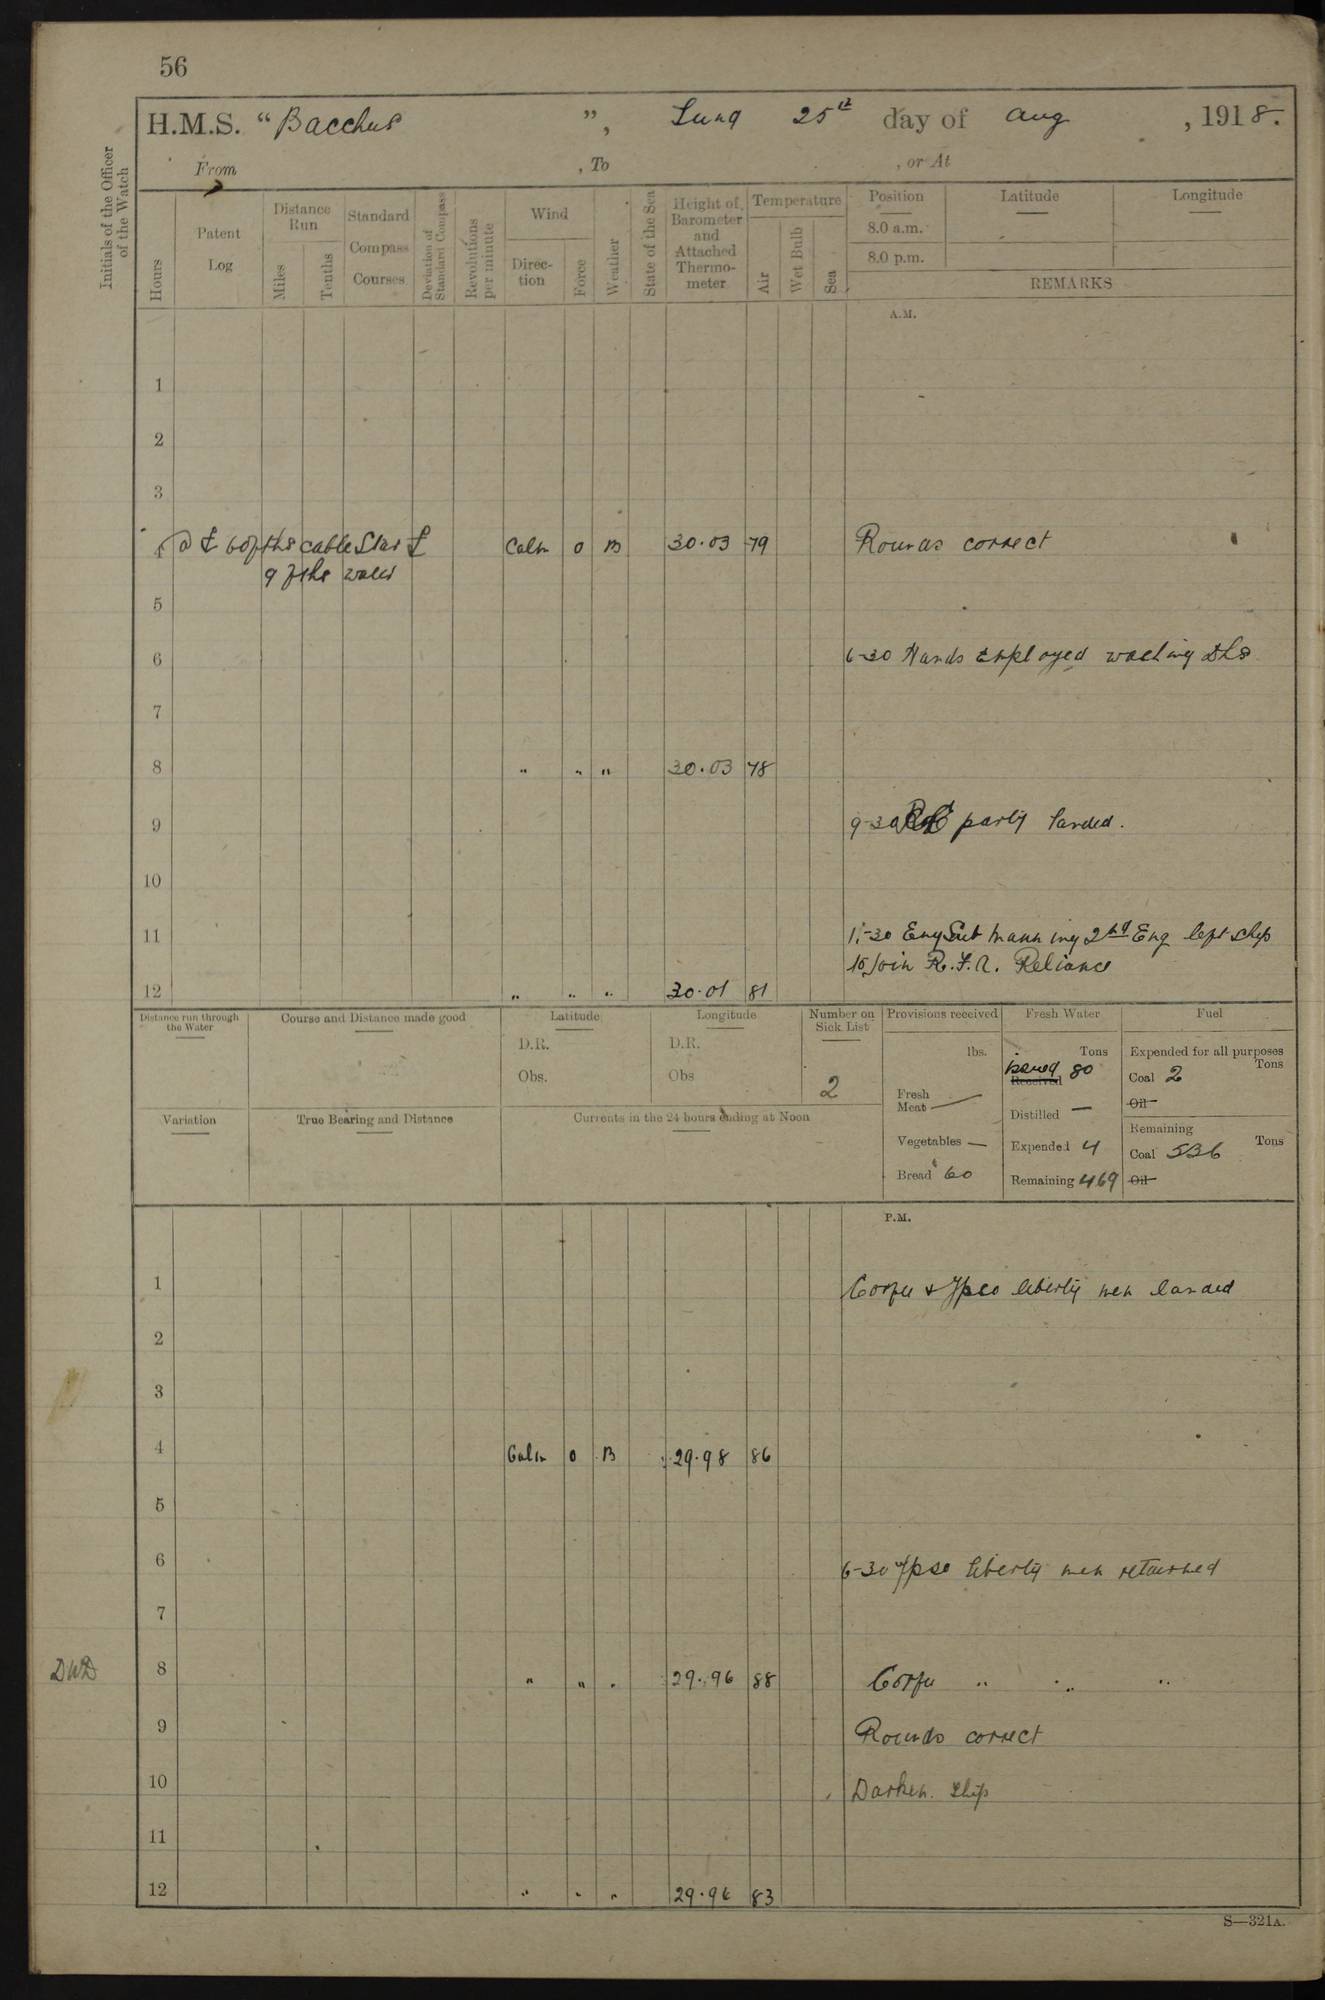 56
H.M.S. “Bacchus ”, Sund 25th day of Aug , 1918.
From , To , or At
Initials of the Officer of the Watch
Hours
Patent Log
Distance Run
Miles
Tenths
Standard Compass Courses
Deviation of Standard Compass
Revolutions per minute
Wind
Direction
Force
Weather
State of the Sea
Height of Barometer and Attached Thermometer
Temperature
Air
Wet Bulb
Sea
Position Latitude Longitude
8.0 a.m.
8.0 p.m.
REMARKS
A.M.
1
2
3
4 cable Calm 0 B 30.03 79 Rounds correct
9 fths water
5
6 6-30 Hands Employed washing dks
7
8 " " " 30.03 78
9 9-30 party landed.
10
11 11-30 Eng Sub 2nd Eng left ship
to join R.F.A. Reliance
12 " " " 30.01 81
Distance run through the Water
Course and Distance made good
Latitude
D.R.
Obs.
Longitude
D.R.
Obs
Number on Sick List
2
Provisions received
lbs.
Fresh Meat —
Vegetables —
Bread 60
Fresh Water
Tons
issued Received 80
Distilled —
Expended 4
Remaining 469
Fuel
Expended for all purposes
Tons
Coal 2
Oil
Remaining
Tons
Coal 536
Oil
Variation
True Bearing and Distance
Currents in the 24 hours ending at Noon
P.M.
1 Corfu & Ipso liberty men landed
2
3
4 Calm 0 B 29.98 86
5
6 6-30 Ipso liberty men returned
7
DWD 8 " " " 29.96 88 Corfu " " "
9 Rounds correct
10 Darken ship
11
12 " " " 29.96 83
S—321A.